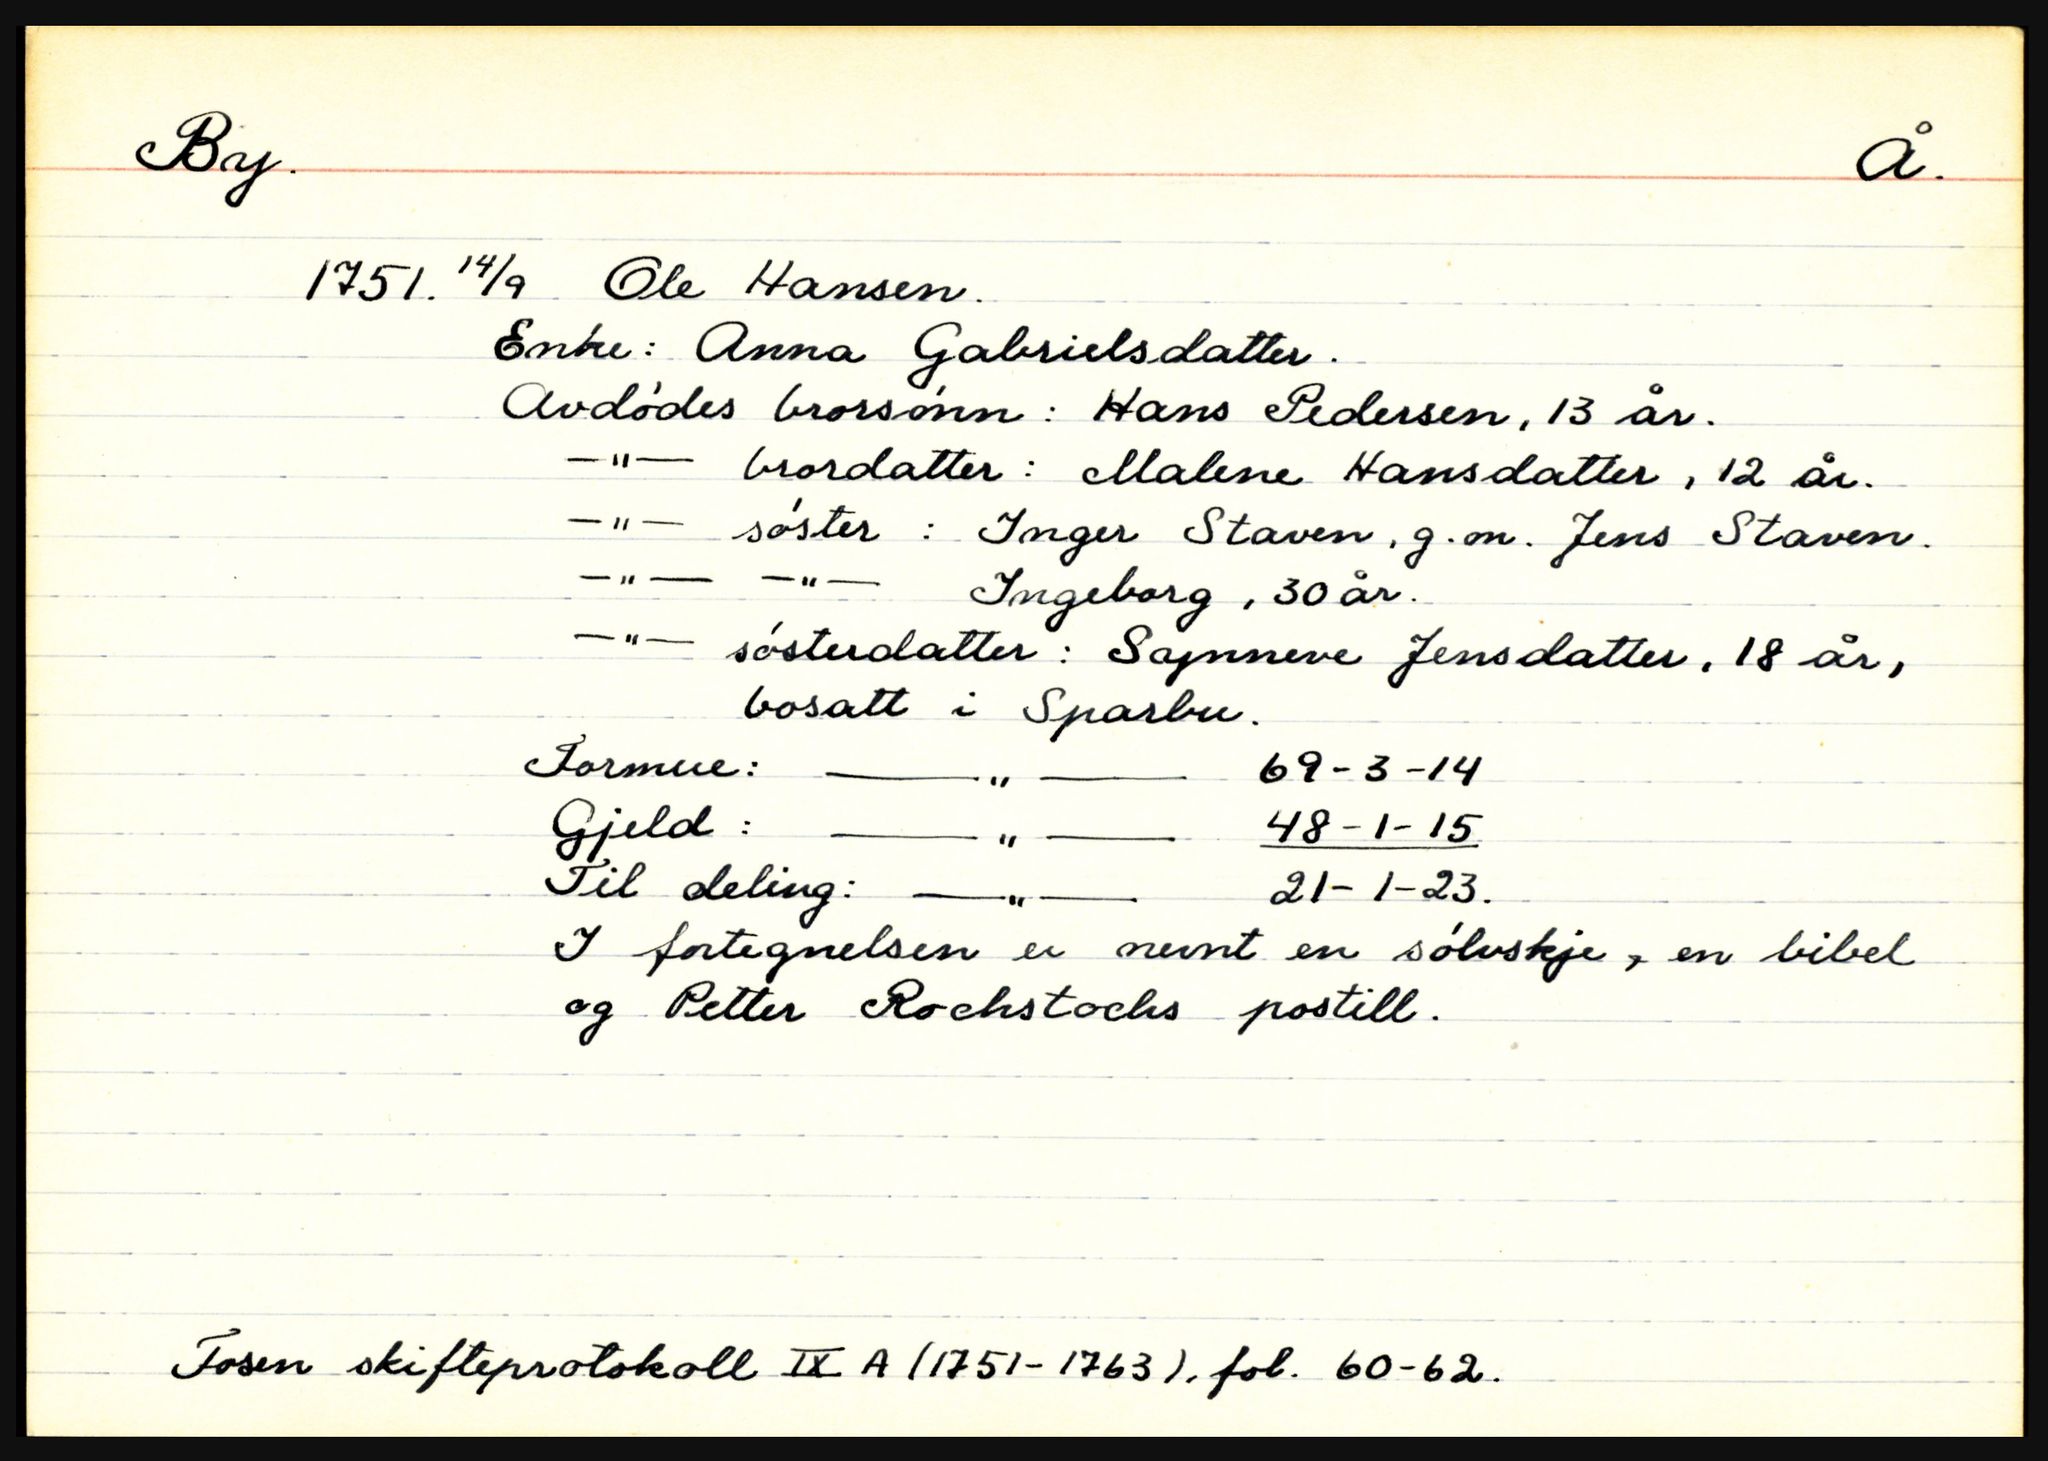 By. Å.
1751. 14/9 Ole Hansen.
Enke: Anna Gabrielsdatter.
Avdódes brorsónn: Hans Pedersen, 13 år.
—"— brordatter: Malene Hansdatter, 12 år.
—"— sóster: Inger Staven, g.m. Jens Staven.
—"— —"— Ingeborg, 30 år.
—"— sósterdatter: Synneve Jensdatter, 18 år,
bosatt i Sparbu.
Formue: —"— 69-3-14
Gjeld: —"— 48-1-15
Til deling: —"— 21-1-23.
I fortegnelsen er nevnt en sólvskje, en bibel
og Petter Rochstochs postill.
Fosen skifteprotokoll IX A (1751-1763), fol. 60-62.